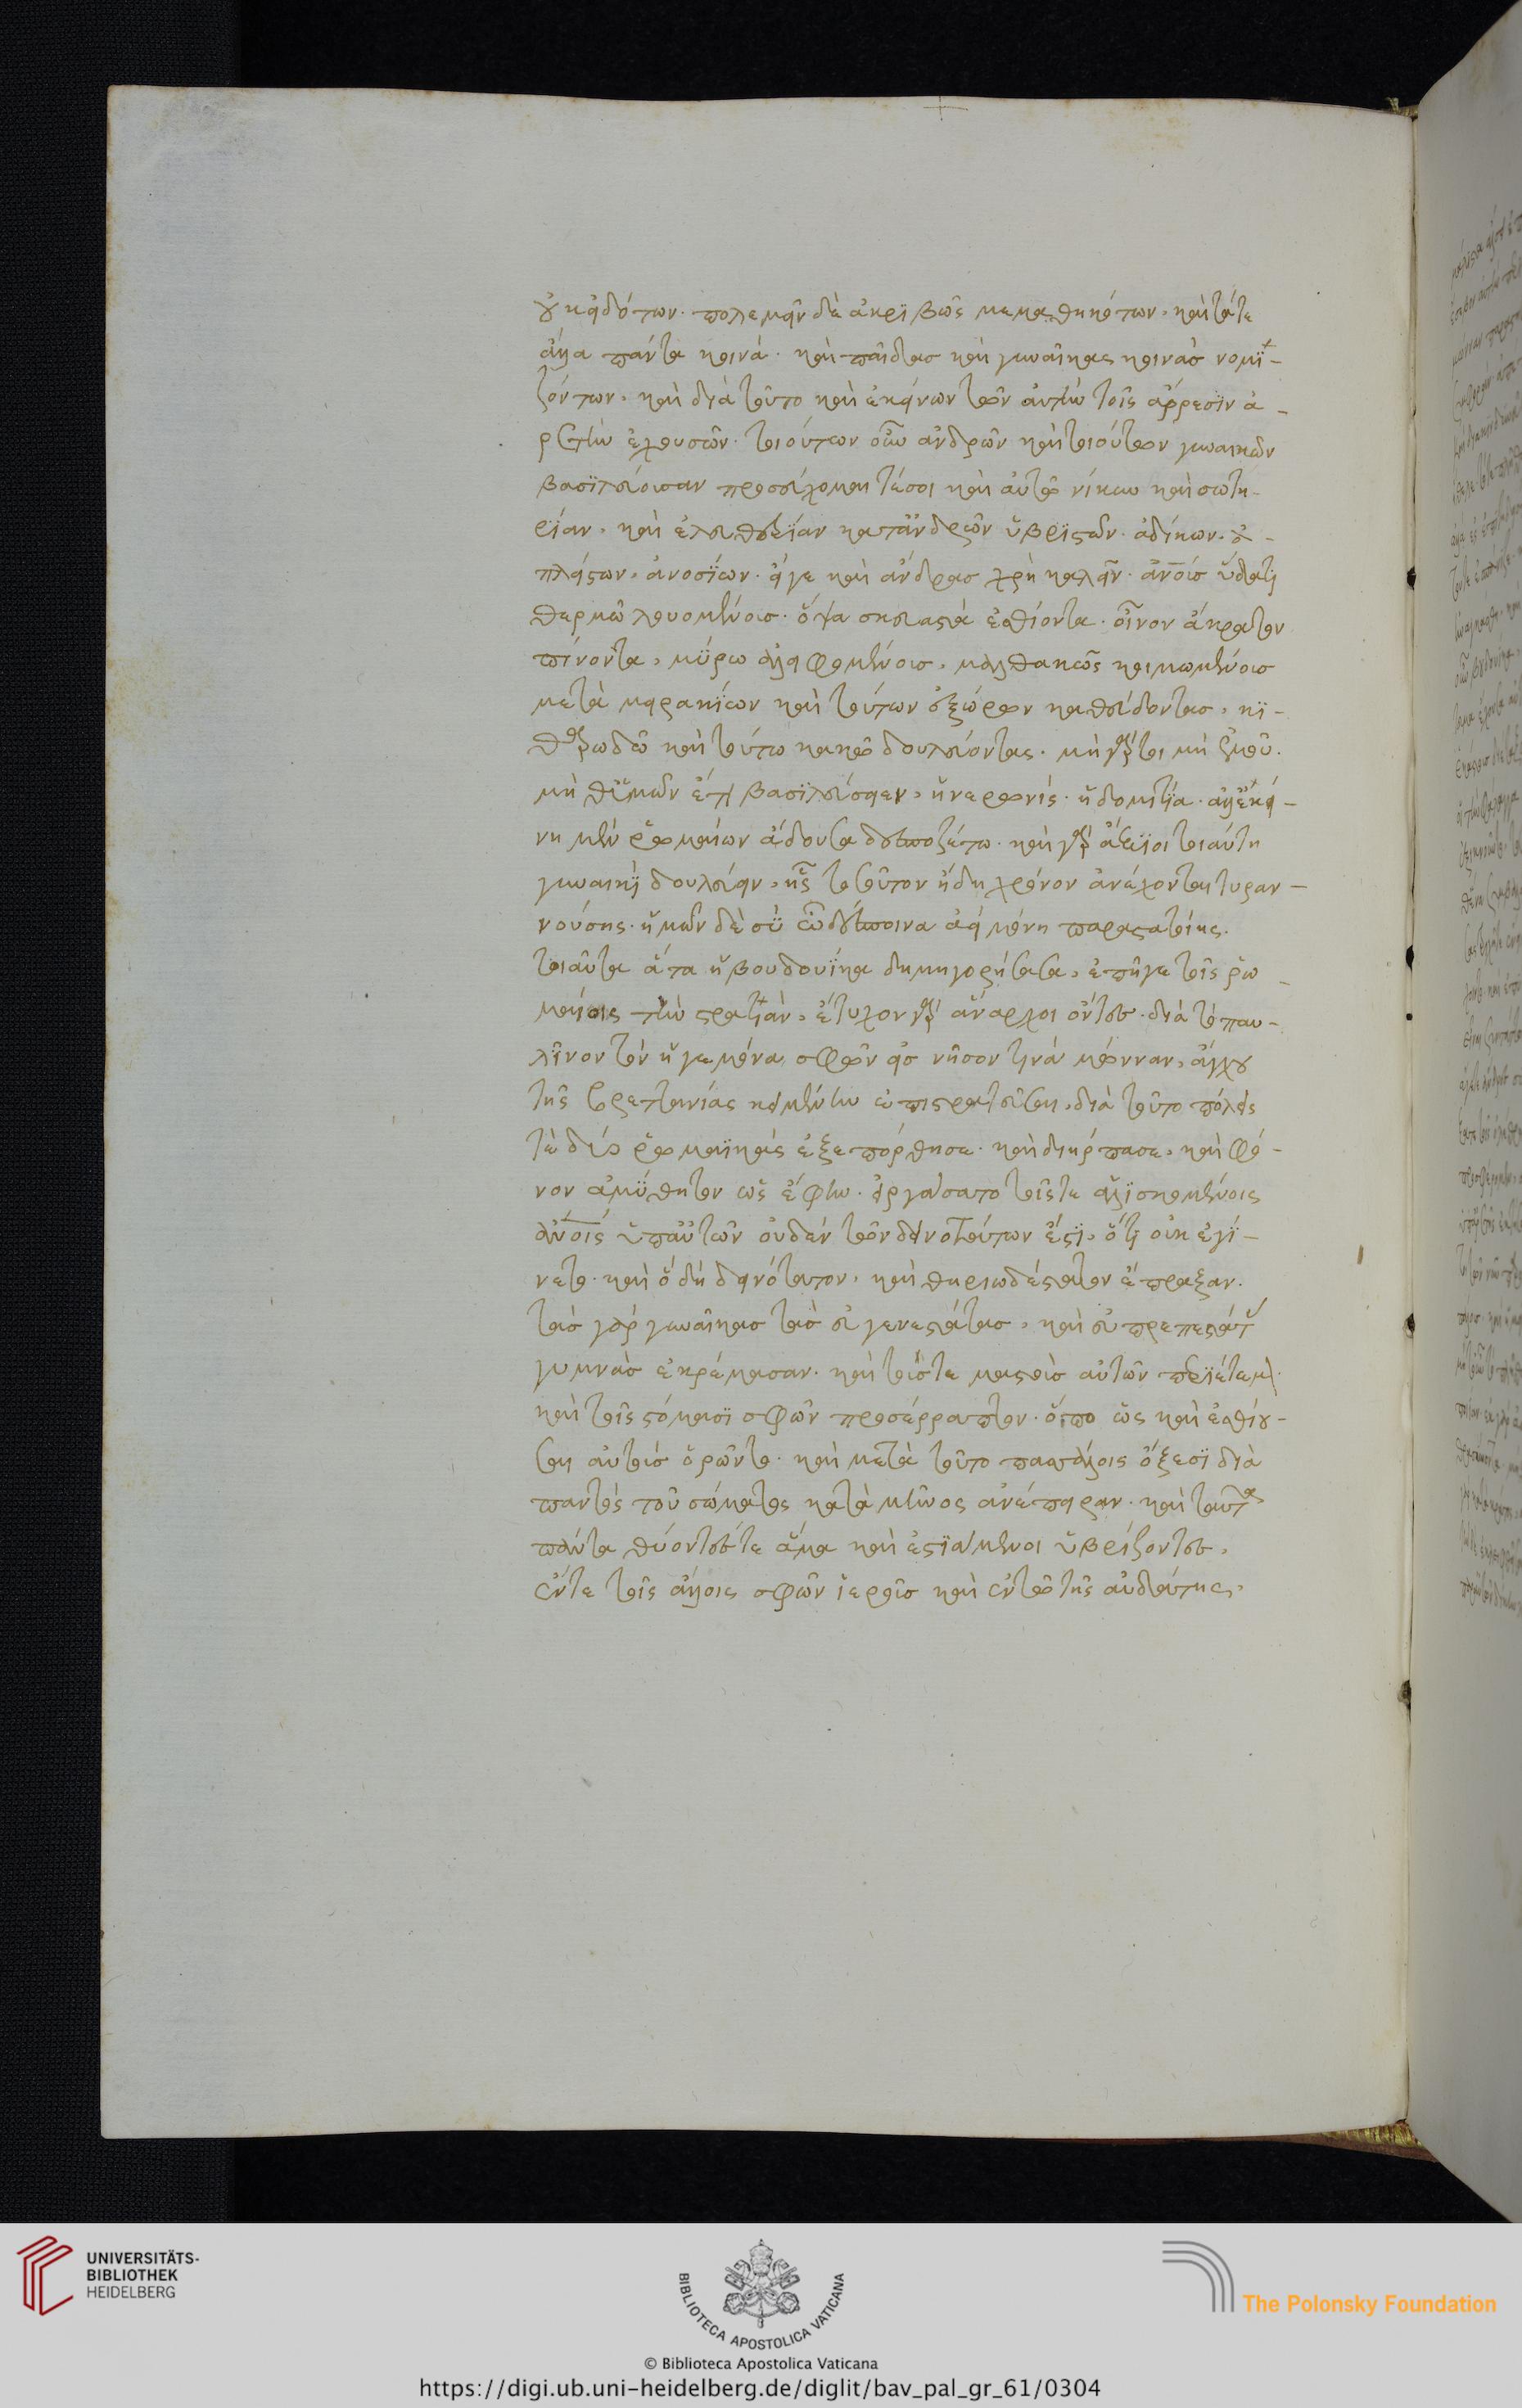 οὐκ εἰδότων. πολεμεῖν δὲ ἀκριβῶς μεμαθηκότων. καὶ τάτε
ἄλλα πάντα κοινά. καὶ παῖδας καὶ γυναῖκας κοινὰς νομι-
ζόντων. καὶ διὰ τοῦτο καὶ ἐκείνων τῶν αὐτὴν τοῖς ἄρρεσιν ἀ-
ρετὴν ἐχουσῶν. τοιούτων οὖν ἀνδρῶν καὶ τοιούτων γυναικῶν
βασιλεύουσαν προσεύχομαι τέ σοι καὶ αὐτῶ νίκην καὶ σωτη-
ρίαν. καὶ ἐλευθερίαν κατ' ἀνδρῶν ὑβριστῶν. ἀδίκων. ἀ-
πλήστων. ἀνοσίων. εἴγε καὶ ἄνδρας χρὴ καλεῖν. ἀνοῖς ὕδατι
θερμῶ λουομένοις. ὄψα σκευαστὰ ἐσθίοντα. οἶνον ἄκρατον
πίνοντα. μύρω ἀλειφομένοις. μαλθακῶς κοιμωμένοις
μετὰ μειρακίων καὶ τούτων ἐξώρων καθεύδοντας. κι-
θαρωδῶ καὶ τούτω κακῶ δουλεύοντας. μὴ γάρ τοι μὴ ἐμοῦ.
μὴ δὲ ὑμῶν ἔτι βασιλεύσειεν. ἡ νερωνὶς. ἡ δομιτία. ἀλλ' ἐκεί-
νη μὲν ῥωμαίων ἄδουσα δεσποζέτω. καὶ γὰρ ἄξιοι τοιαύτη
γυναικὶ δουλεύειν. ἧς τοσοῦτον ἤδη χρόνον ἀνέχονται τυραν-
νούσης. ἡμῶν δὲ σὺ ὦ δέσποινα ἀεὶ μόνη προστατοίης.
τοιαῦτα ἄττα ἡ βουδουίκα δημηγορήσασα. ἐπῆγε τοῖς ῥω-
μαίοις τὴν στρατιάν. ἔτυχον γὰρ ἄναρχοι ὄντες. διὰ τὸ παυ-
λῖνον τὸν ἡγεμόνα σφῶν εἰς νῆσον τινὰ μώνναν. ἀγχοῦ
τῆς βρεττανίας κειμένην ἐπιστρατεῦσαι. διὰ τοῦτο πόλεις
τὲ δύο ῥωμαϊκὰς ἐξεπόρθησε. καὶ διήρπασε. καὶ φό-
νον ἀμύθητον ὡς ἔφην. εἰργάσατο τοῖς τε ἁλισκομένοις
ἀνοις ὑπ' αὐτῶν οὐδὲν τῶν δεινοτάτων ἔστιν. ὅτι οὐκ ἐγί-
νετο. καὶ ὃ δὴ δεινότατον. καὶ θηριωδέστατον ἔπραξαν.
τὰς γὰρ γυναῖκας τὰς εὐγενεστάτας. καὶ εὐπρεπεστάτ
γυμνὰς ἐκρέμασαν. καὶ τούς τε μαστοὺς αὐτῶν περιέτεμον.
καὶ τοῖς στόμασι σφῶν προσέρραπτον. ὅπως καὶ ἐσθίου-
σαι αὐτοὺς ὁρῶντο. καὶ μετὰ τοῦτο πασσάλοις ὀξέσι διὰ
παντὸς τοῦ σώματος κατὰ μῆκος ἀνέπειραν. καὶ ταῦτα
πάντα θύοντές τε ἅμα καὶ ἑστιώμενοι ὑβρίζοντες.
ἔν τε τοῖς ἄλλοις σφῶν ἱεροῖς καὶ ἐν τῶ τῆς ἀνδάτης.
UNIVERSITÄTS-
BIBLIOTHEK
HEIDELBERG
BIBLIOTECA APOSTOLICA VATICANA
The Polonsky Foundation
© Biblioteca Apostolica Vaticana
https://digi.ub.uni-heidelberg.de/diglit/bav_pal_gr_61/0304